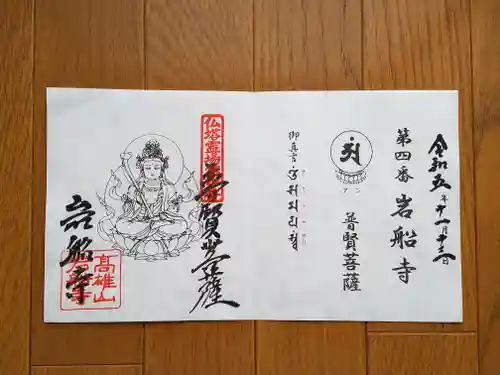 令和五年十一月十三日
第四番 岩船寺
アン
普賢菩薩
御真言
普賢菩薩
岩船寺
高雄山